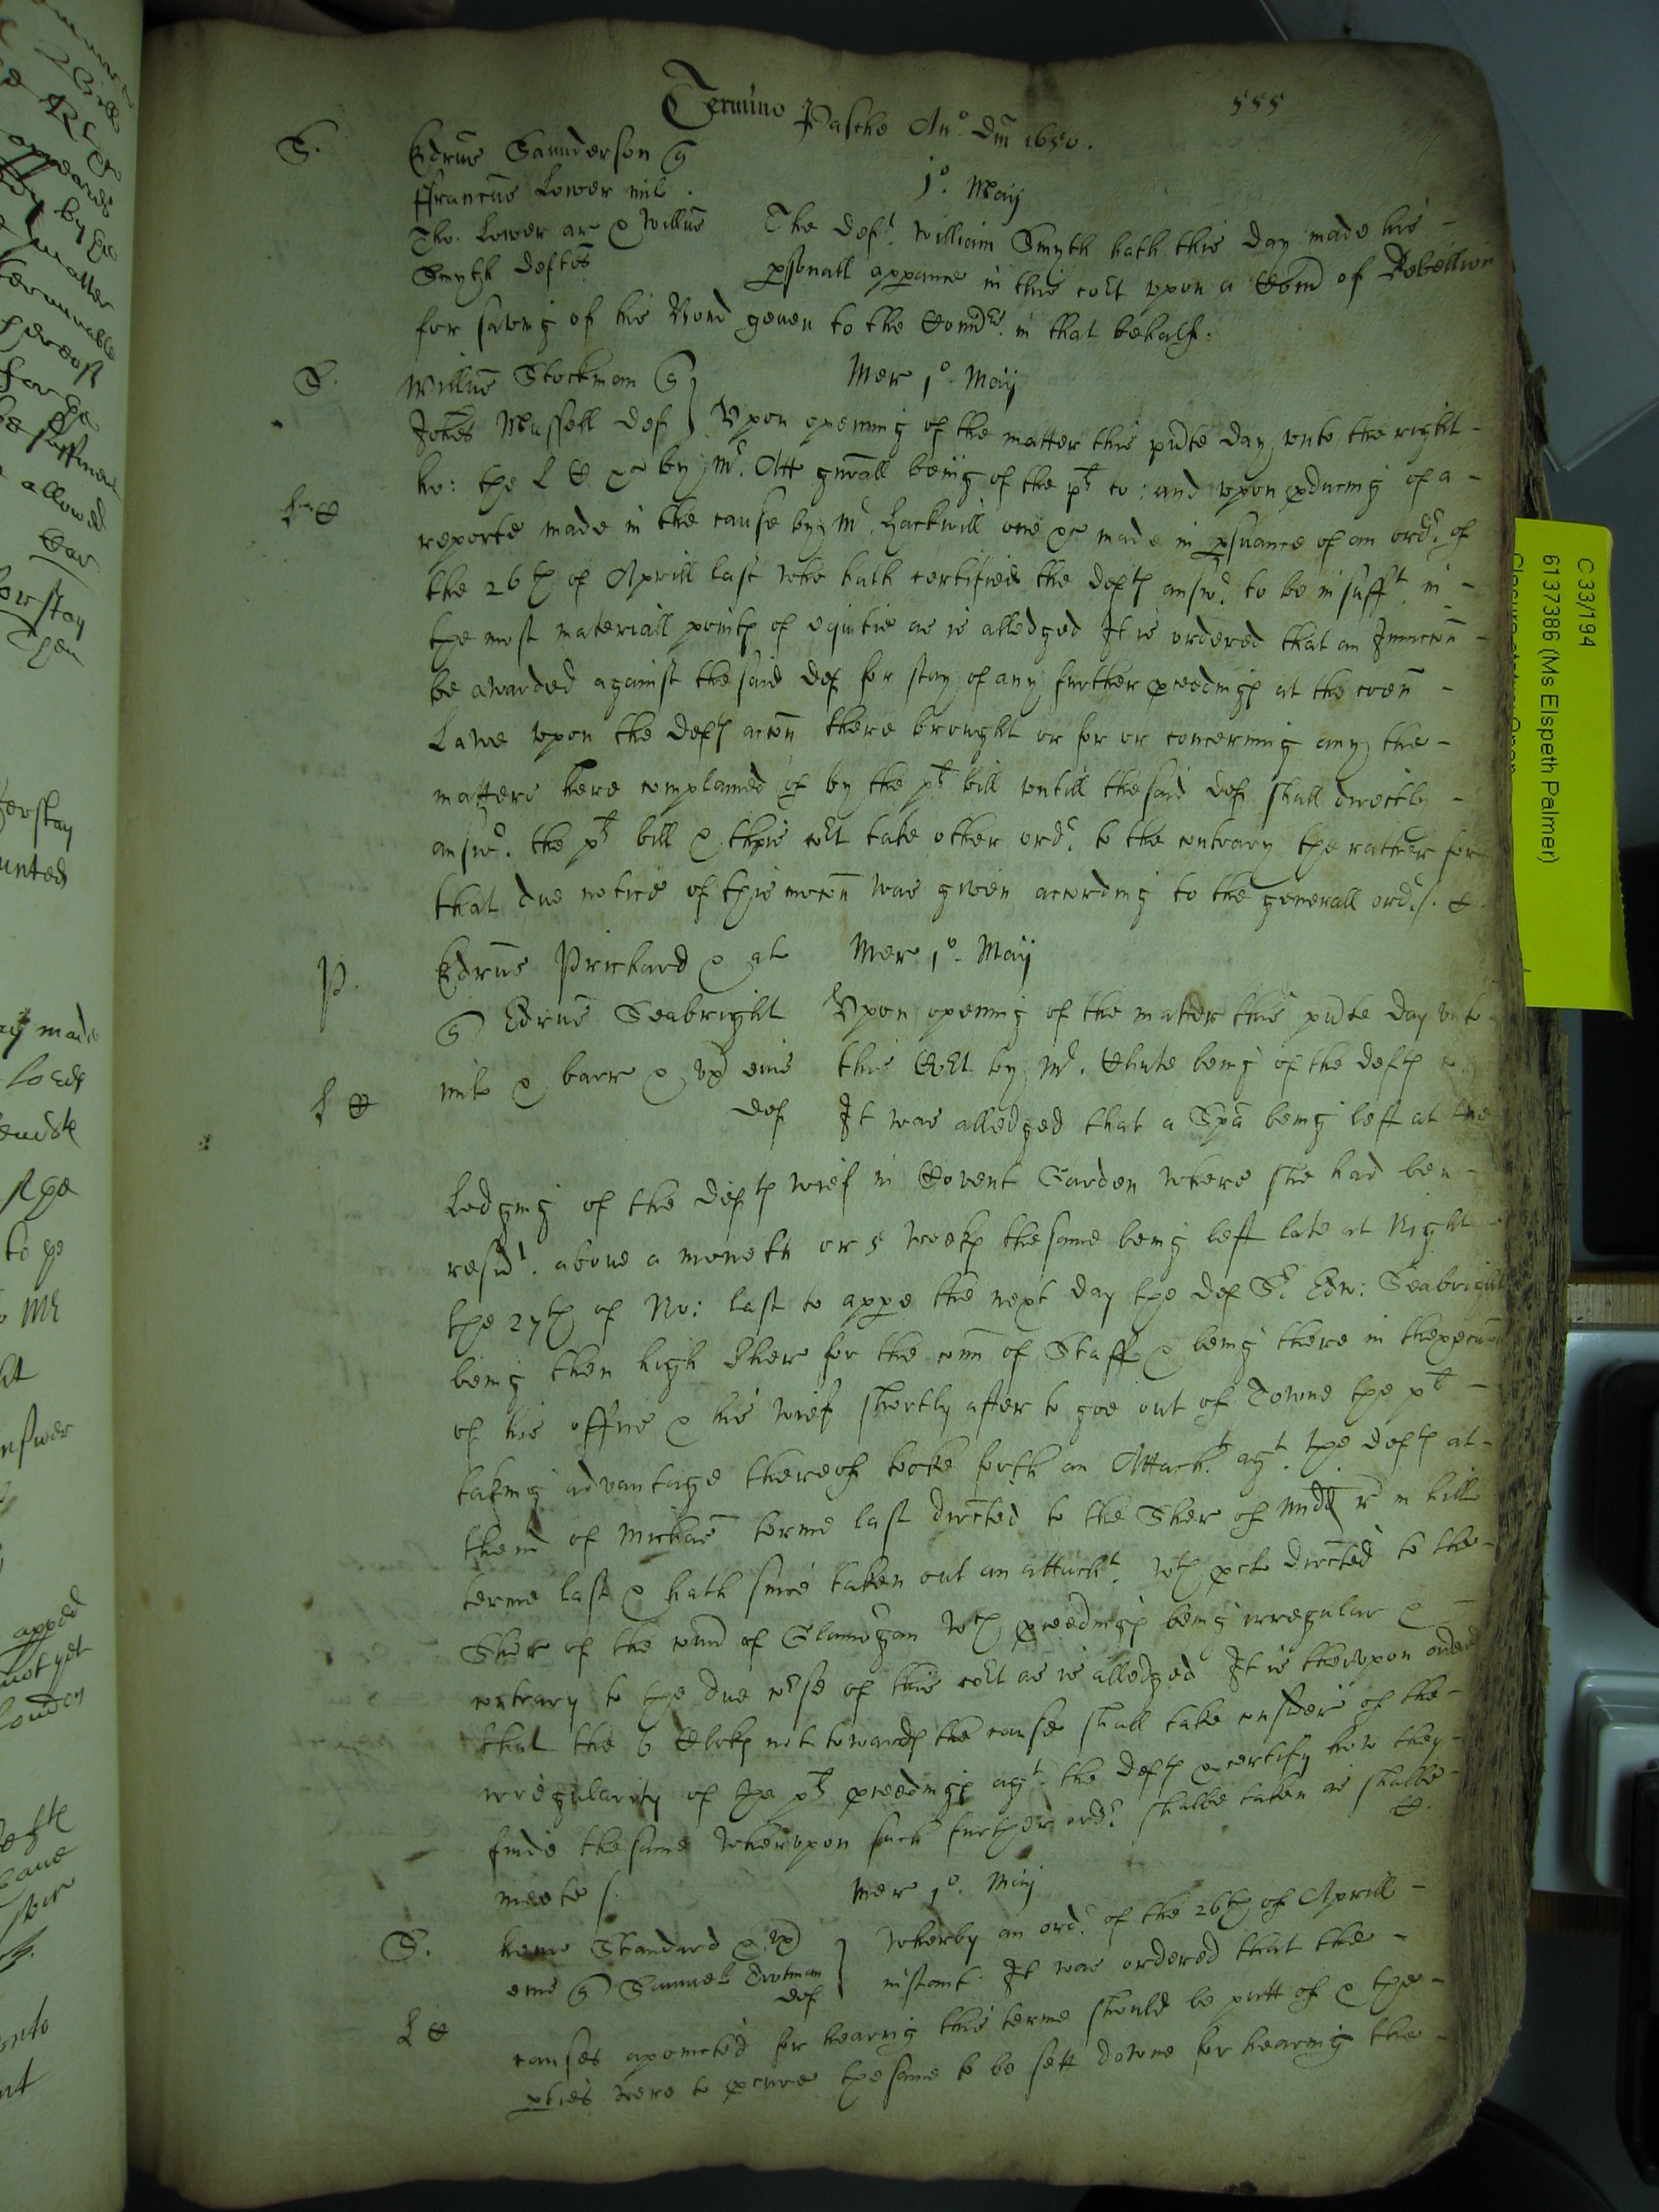 Termino Pasche An.o Dm 1650.
555
S. Edrus Saunderson q
Francus Lower mil.
Tho. Lower ar & Willus
Smyth Deftes
1o. Maij
The Deft. William Smyth hath this day made his -
psonall apparance in this co:rt upon a Com of Rebellion
for saving of his Bond geven to the Com:rs. in that behalf.
S. Willus Stockman q
Johes Mussell Def
Mer 1o. Maij
Upon opening of the matter this pnte day unto the right -
L C
ho: the L C &c by Mr. Att gnall being of the pts co: and upon pducing of a -
reporte made in the cause by Mr. Hackwill one &c made in psuance of an ordr. of
the 26th of Aprill last who hath certified the Defts answr. to be insufft. in -
the most materiall points of equitie as is alledged It is ordered that an Iniuncon -
be awarded against the said Def for stay of any further pceedings at the coen -
Lawe upon the Defts accon there brought or for or concerning any the -
matters here complained of by the pts bill untill the said Def shall directly -
answr. the pts bill & this co:rt take other ordr. to the contrary the rather for
that due notice of this mocon was given according to the generall ordrs. &.
P. Edrus Prichard & al
q Edrus Seabright
milt & barr & ux eius
Def
Mer 1o. Maij
Upon opening of the matter this pnte day unto
this Co:rt by Mr. Chute being of the Defts co
L C
It was alledged that a Spa being left at the
Lodging of the Defts wief in Covent Garden where she had ben -
resid:t. above a moneth or 5 weeks the same being left late at Night -
the 27th of No: last to appe the next day the Def Sr. Edw: Seabright
being then high Sher for the com of Staff & being there in thexecucon
of his office & his wief shortly after to goe out of Towne the pt -
taking advantage thereof tooke forth an Attach:t agt. the Defts at -
thend of Michaes terme last directed to the Sher of Midd r in hill
terme last & hath since taken out an attach:t. wth pcl directed to the -
Sher of the com of Glamorgan wch pceedings being irregular & -
contrary to the due co:rse of this co:rt as is alledged It is therupon ordered
that the 6 Clerks not towards the cause shall take consider of the -
irregularity of the pts pceedings agt. the Defts & certify how they -
finde the same Wherupon such further ordr. shalbe taken as shalbe -
meete /. &.
Mer 1o. Maij
S. Standard & ux
eius q Samuel
Def
Wherby an ordr. of the 26th of Aprill -
instant It was ordered that the -
L C
causes apointed for hearing this terme should be putt of & the -
pties were to pcure the same to be sett downe for hearing the -
C 33/194
6137386 (Ms Elspeth Palmer)